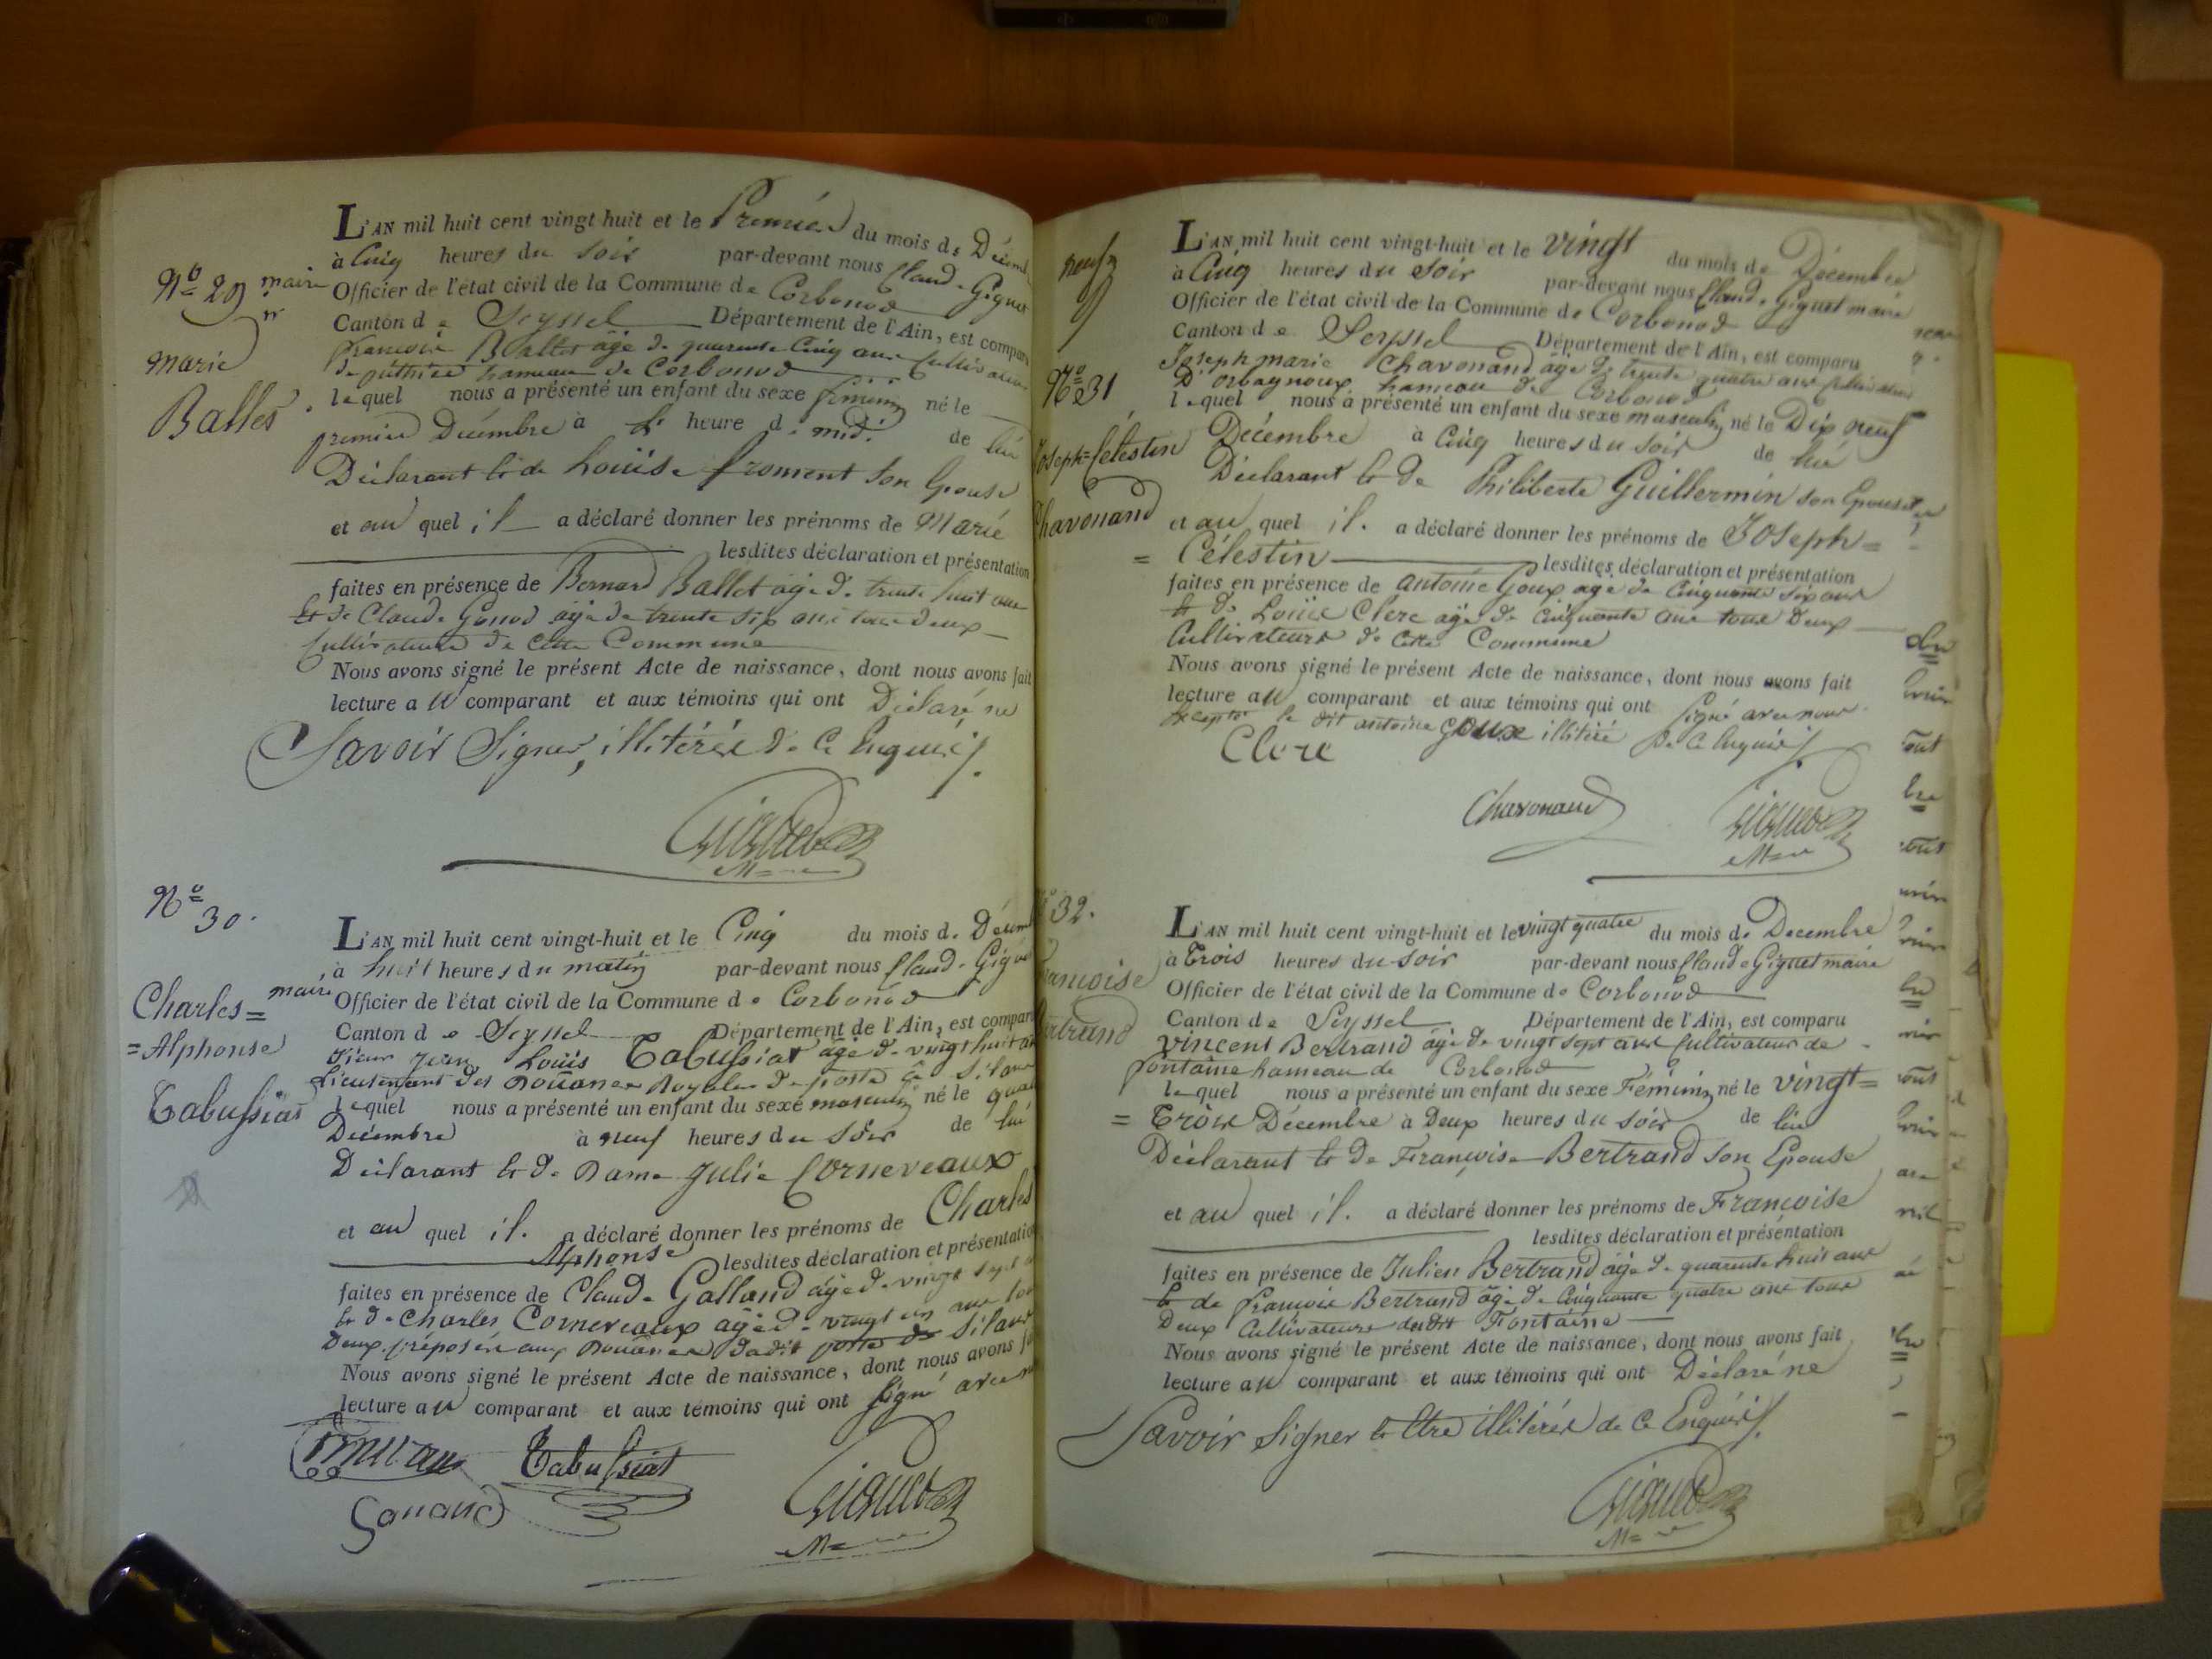 N.º 29
marie
Ballet
L'AN mil huit cent vingt-huit et le Premier du mois de Décemb
à Cinq heures du soir par-devant nous Claude Giguet
maire Officier de l'état civil de la Commune de Corbonod
Canton de Seyssel Département de l'Ain, est comparu
françois Ballet âgé de quarente Cinq ans Cultivateur
hameau de Corbonod
lequel nous a présenté un enfant du sexe féminin né le
premier Décembre à heure de midi de lui
Déclarant et de Louise froment Son Epouse
et au quel il a déclaré donner les prénoms de Marie
lesdites déclaration et présentation
faites en présence de Bernard Ballet âgé de trente huit ans
Et de Claude Gonod âgé de trente six ans tous deux
Cultivateurs de cette Commune
Nous avons signé le présent Acte de naissance, dont nous avons fait
lecture au comparant et aux témoins qui ont Déclaré ne
Savoir Signer, illitérés de ce Enquis /.
Giguet
N.º 30.
Charles=
=Alphonse
Tabussiat
L'AN mil huit cent vingt-huit et le Cinq du mois de Décem
à huit heures du matin par-devant nous Claude Gigue
maire Officier de l'état civil de la Commune de Corbonod
Canton de Seyssel Département de l'Ain, est comparu
Sieur Jean Louis Tabussiat âgé de vingt huit an
Lieutenant des Douanes Royales de poste à Silan
lequel nous a présenté un enfant du sexe masculin né le quat
Décembre à neuf heures du Soir de lui
Déclarant et de Dame Julie Corneveaux
et au quel il. a déclaré donner les prénoms de Charles
Alphonse lesdites déclaration et présentation
faites en présence de Claude Galland âgé de vingt sept
et de Charles Corneveaux âgé de vingt un ans tou
Deux préposés aux Douanes dudit poste de Silan
Nous avons signé le présent Acte de naissance, dont nous avons f
lecture au comparant et aux témoins qui ont Signé avec n
Tabussiat
Giguet
neuf
N.º 31
Joseph=Célestin
Chavonand
L'AN mil huit cent vingt-huit et le vingt du mois de Décembre
à Cinq heures du Soir par-devant nous Claude Giguet maire
Officier de l'état civil de la Commune de Corbonod
Canton de Seyssel Département de l'Ain, est comparu
Joseph marie Chavonand âgé de trente quatre ans Cultivateur
D'orbagnoux hameau de Corbonod
lequel nous a présenté un enfant du sexe masculin né le Dix neuf
Décembre à Cinq heures du soir de lui
Déclarant et de Philiberte Guillermin son Epouse
et au quel il. a déclaré donner les prénoms de Joseph=
= Célestin lesdites déclaration et présentation
faites en présence de antoine Goux agé de Cinquante six ans
et de Louis Clerc âgé de Cinquante ans tous Deux
Cultivateurs de Cette Commune
Nous avons signé le présent Acte de naissance, dont nous avons fait
lecture au comparant et aux témoins qui ont Signé avec nous
Excepté le dit antoine Goux illitéré de Ce Enquis /.
Clerc
Chavonand
Giguet
32.
Francoise
Bertrand
L'AN mil huit cent vingt-huit et le vingt quatre du mois de Decembre
à Trois heures du soir par-devant nous Claude Giguet maire
Officier de l'état civil de la Commune de Corbonod
Canton de Seyssel Département de l'Ain, est comparu
Vincent Bertrand âgé de vingt sept ans Cultivateur de
fontaine hameau de Corbonod
lequel nous a présenté un enfant du sexe Féminin né le vingt=
= Trois Décembre à Deux heures du soir de lui
Déclarant et de Françoise Bertrand son Epouse
et au quel il. a déclaré donner les prénoms de Francoise
lesdites déclaration et présentation
faites en présence de Julien Bertrand âgé de quarente huit ans
Et de François Bertrand âgé de Cinquante quatre ans tous
Deux Cultivateurs dudit Fontaine
Nous avons signé le présent Acte de naissance, dont nous avons fait
lecture au comparant et aux témoins qui ont Déclaré ne
Savoir Signer et Etre illitérés de Ce Enquis /.
Giguet